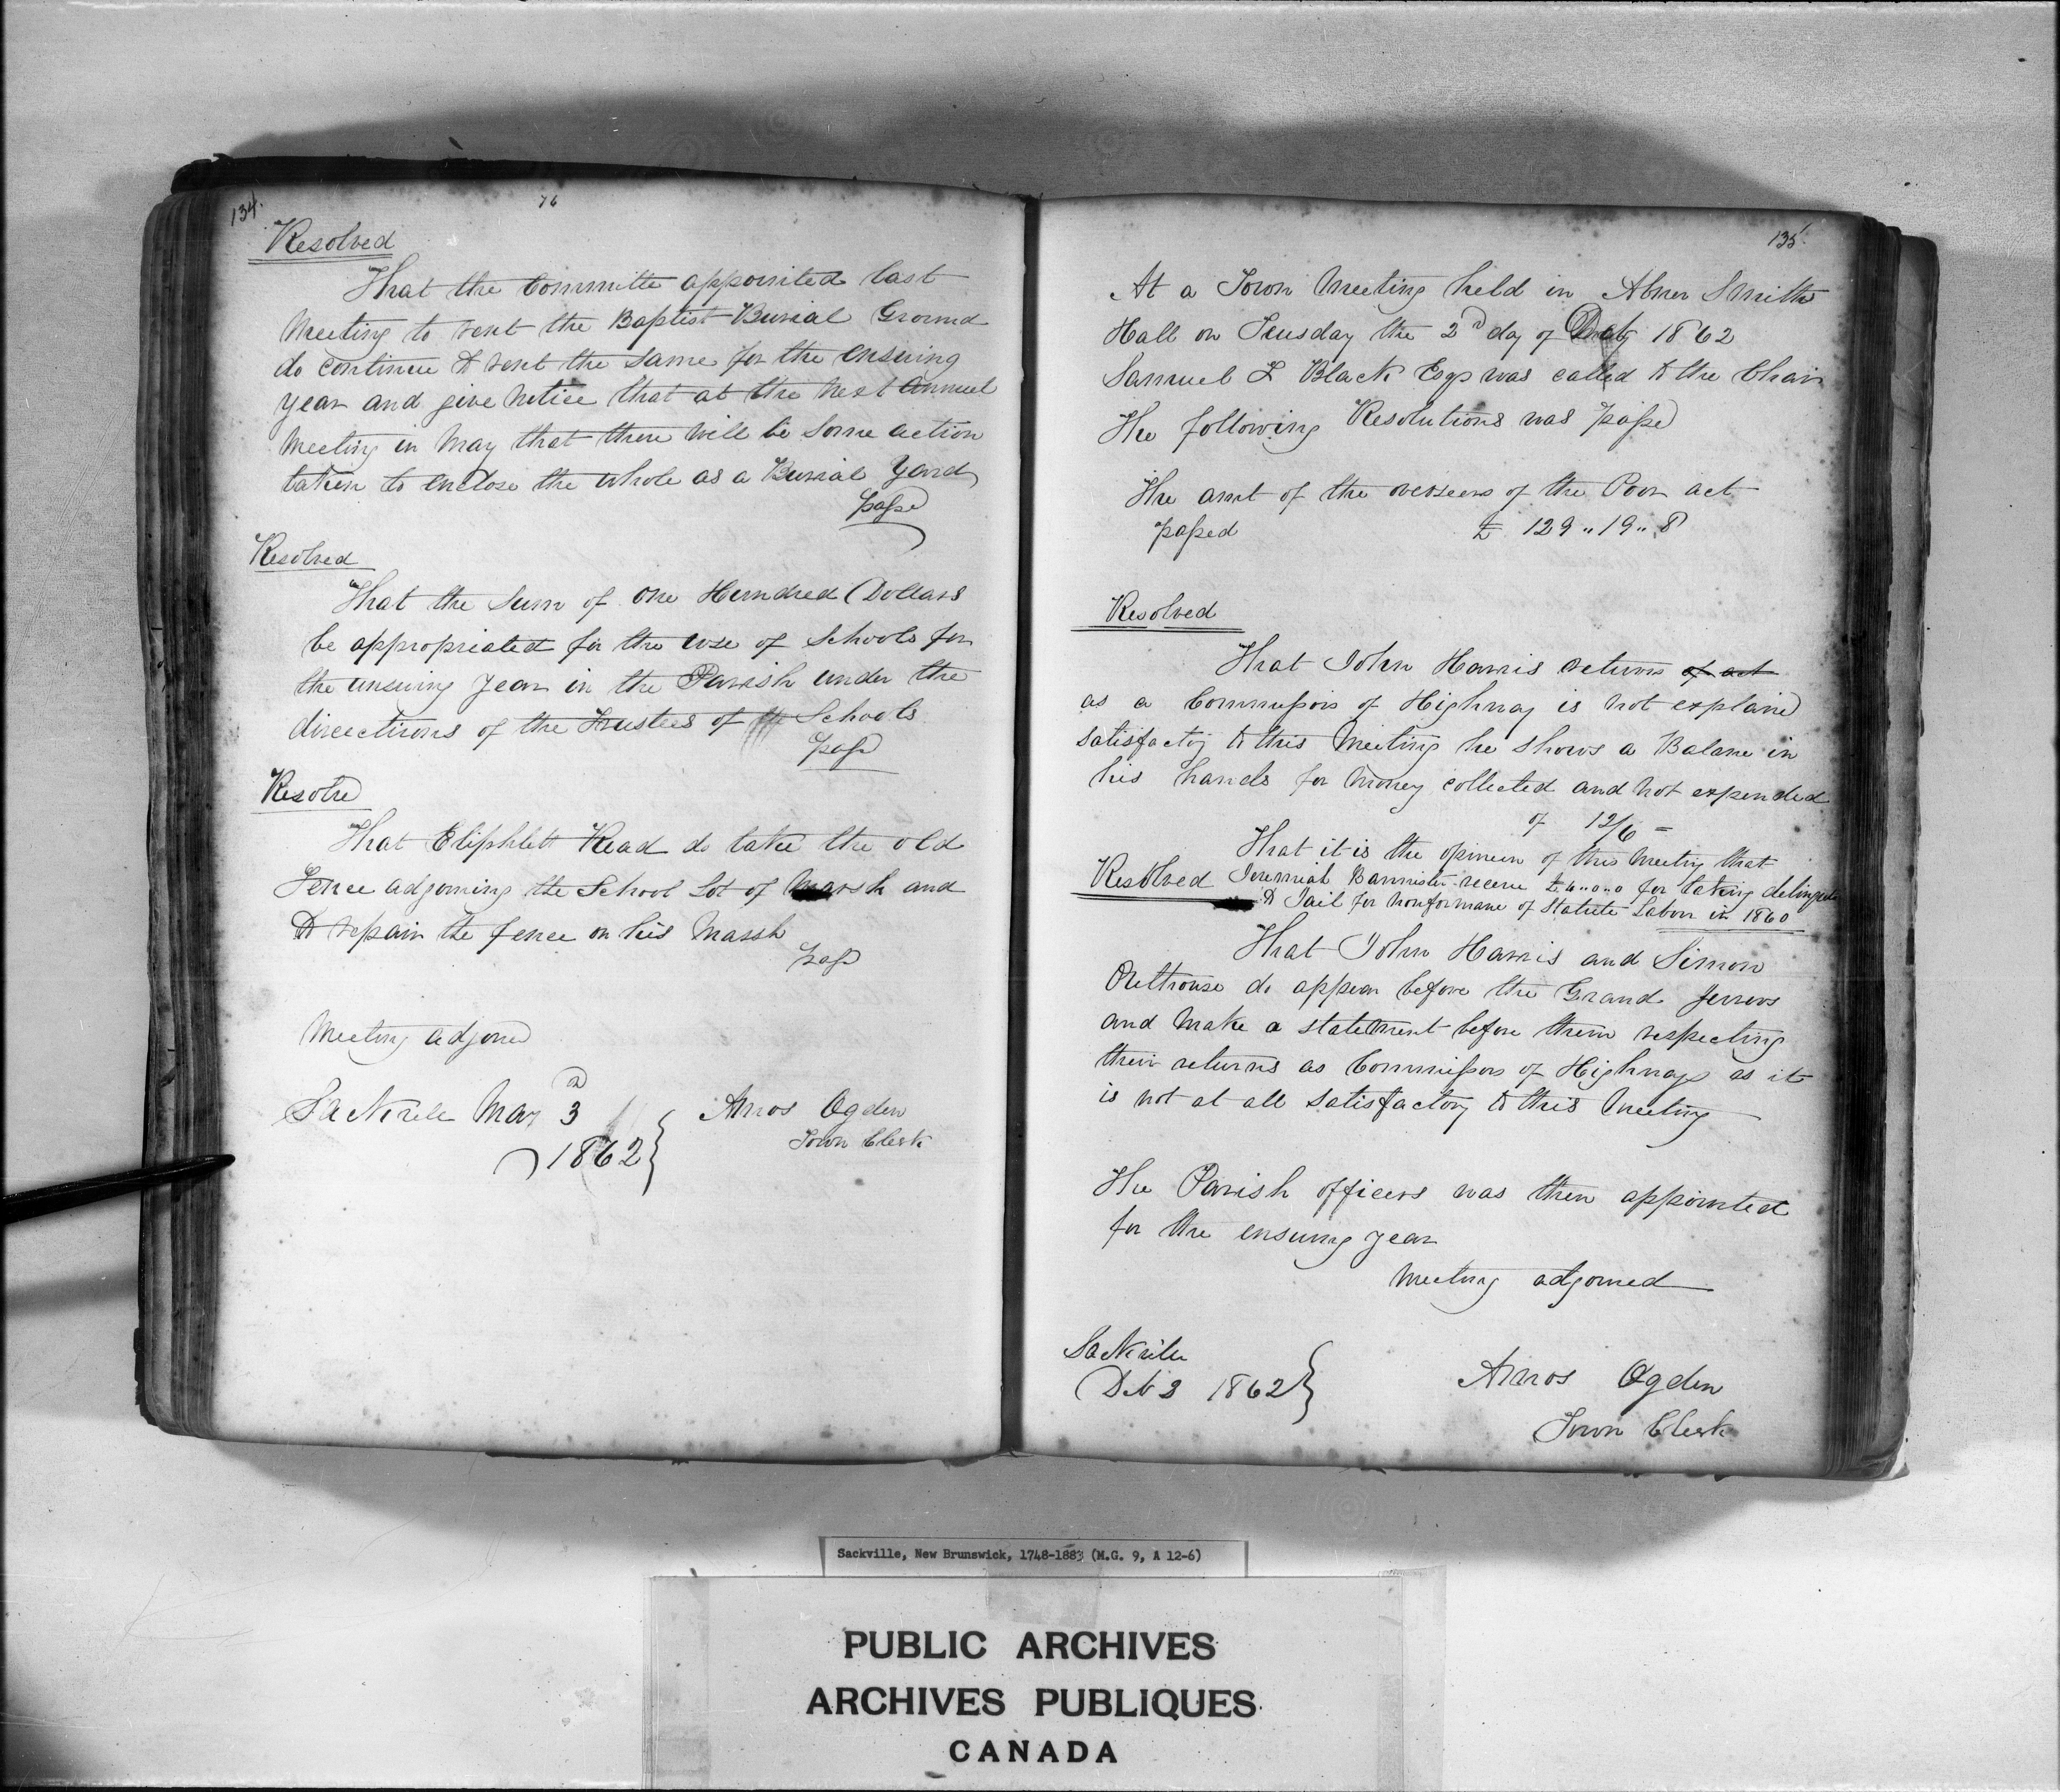 134.
76
Resolved
That the Committe appointed last
Meeting to rent the Baptist Burial Ground
do continue to rent the same for the ensuing
year and give Notice that at the Next Annuel
Meeting in May that there will be some action
taken to enclose the whole as a Burial Yard
passd
Resolved
That the Sum of One Hundred Dollars
be appropriated for the use of Schools for
the ensuing year in the Parish under the
directions of the Trustees of Schools
passd
Resolvd
That Eliphlett Read do take the old
Fence adjoining the School Lot of Marsh and
to repair the fence on his Marsh
passd
Meeting adjornd
Sackvile May 3d
1862
Amos Ogden
Town Clerk
135.
At a Town Meeting held in Abner Smiths
Hall on Tuesday the 2d day of 1862
Samuel L Black Esqr was called to the Chair
The following Resolutions was passd
The amt of the overseers of the Poor act
passed £ 129 " 19 " 8
Resolved
That John Harris return of act
as a Commissors of Highway is not explaind
satisfactoy to this Meeting he shows a Balance in
his hands for Money collected and not expended
of 12/6 -
That it is the opineon of this Meeting that
Resolved Jeremiah Bannister receive £ 6 " 0 " 0 for taking
to Jail for nonformane of Statute Labor in 1860
That John Harris and Simon
Outhouse do appear before the Grand Jurrors
and make a statement before them respecting
their returns as Commissors of Highways as it
is not at all satisfactory to this Meeting
The Parish officers was then appointed
for the ensuing year
Meeting adjorned
Sackvile
1862
Amos Ogden
Town Clerk
Sackville, New Brunswick, 1748-1883 (M.G. 9, A 12-6)
PUBLIC ARCHIVES
ARCHIVES PUBLIQUES
CANADA